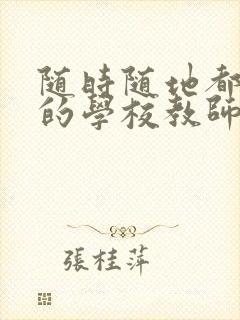 随時随地都
的學校教師
張桂萍